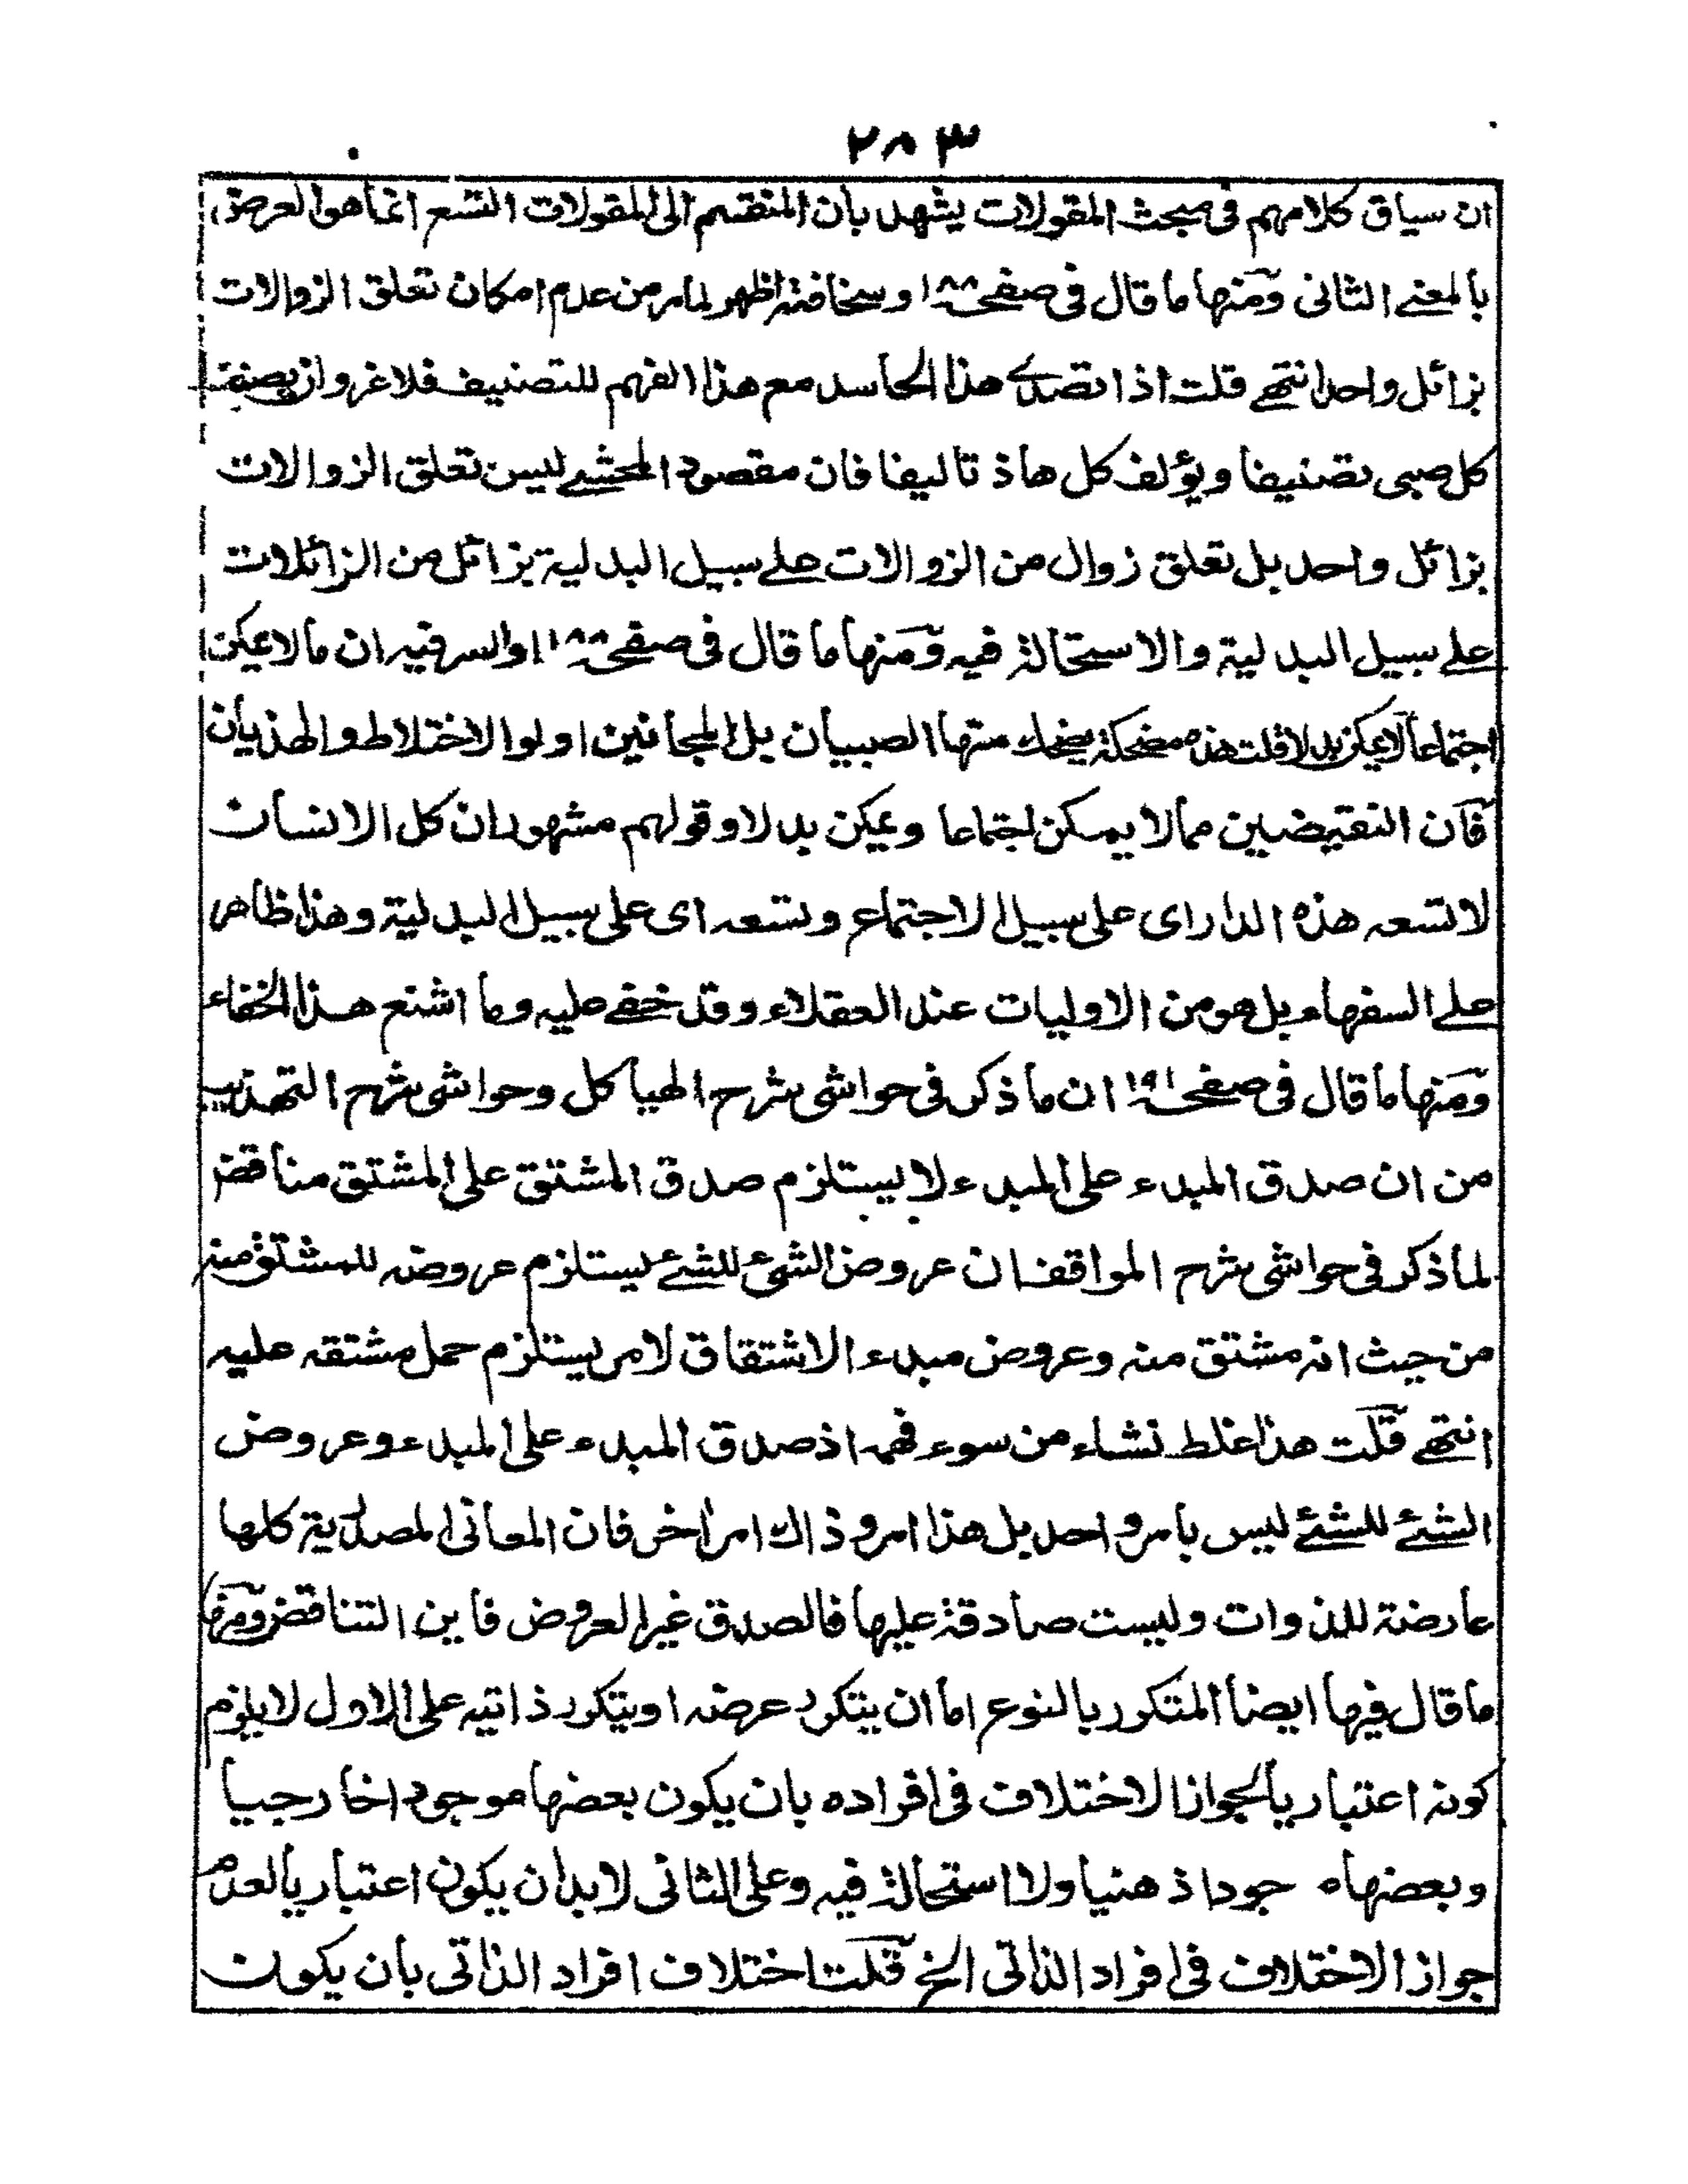 ٢٨٣
ان سياق كلامهم فى مبحث المقولات يشهد بان المنقسم الى المقولات التسع انما هو العرض
بالمعنے الثانى ومنها ما قال فى صفحہ ١٨٨ وسخافتہ اظهر لما مر من عدم امكان تعلق الزوالات
بزائل واحد انتهے قلت اذا تصدے هذا الحاسد مع هذا الفهم للتصنيف فلا غرو ان يصنف
كل صبى تصنيفا ويؤلف كل هاذ تاليفا فان مقصود المحشے ليس تعلق الزوالات
بزائل واحد بل تعلق زوال من الزوالات علے سبيل البدلية بزائل من الزائلات
علے سبيل البدلية والاستحالة فيه ومنها ما قال فى صفحہ ١٨٨ والسر فيه ان ما لا يمكن
اجتماعا لا يمكن بدلا قلت هذه مضحكة يضحك منها الصبيان بل المجانين اولوا الاختلاط والهذيان
فان النقيضين مما لا يمكن اجتماعا ويمكن بدلا وقولهم مشهور ان كل الانسان
لا تسعه هذه الدار اى على سبيل الاجتماع وتسعه اى على سبيل البدلية وهذا ظاهر
علے السفهاء بل هو من الاوليات عند العقلاء وقد خفے عليه وما اشنع هذا الخفاء
ومنها ما قال فى صفحہ ١٩١ ان ما ذكر فى حواشى شرح الهياكل وحواشى شرح التهذيب
من ان صدق المبدء على المبدء لا يستلزم صدق المشتق على المشتق مناقض
لما ذكر فى حواشى شرح المواقف ان عروض الشئ للشئے يستلزم عروضه للمشتق منه
من حيث انه مشتق منه وعروض مبدء الاشتقاق لامر يستلزم حمل مشتقه عليه
انتهے قلت هذا غلط نشاء من سوء فهمه اذ صدق المبدء على المبدء وعروض
الشئے للشئے ليس بامر واحد بل هذا امر وذاك امر اخر فان المعانى المصدرية كلها
عارضة للذوات وليست صادقة عليها فالصدق غير العروض فاين التناقض ومنها
ما قال فيها ايضا المتكرر بالنوع اما ان يتكرر عرضه او يتكرر ذاتيه على الاول لا يلزم
كونه اعتباريا لجواز الاختلاف فى افراده بان يكون بعضها موجودا خارجيا
وبعضها موجودا ذهنيا ولا استحالة فيه وعلى الثانى لا بد ان يكون اعتباريا لعدم
جواز الاختلاف فى افراد الذاتى الخ قلت اختلاف افراد الذاتى بان يكون